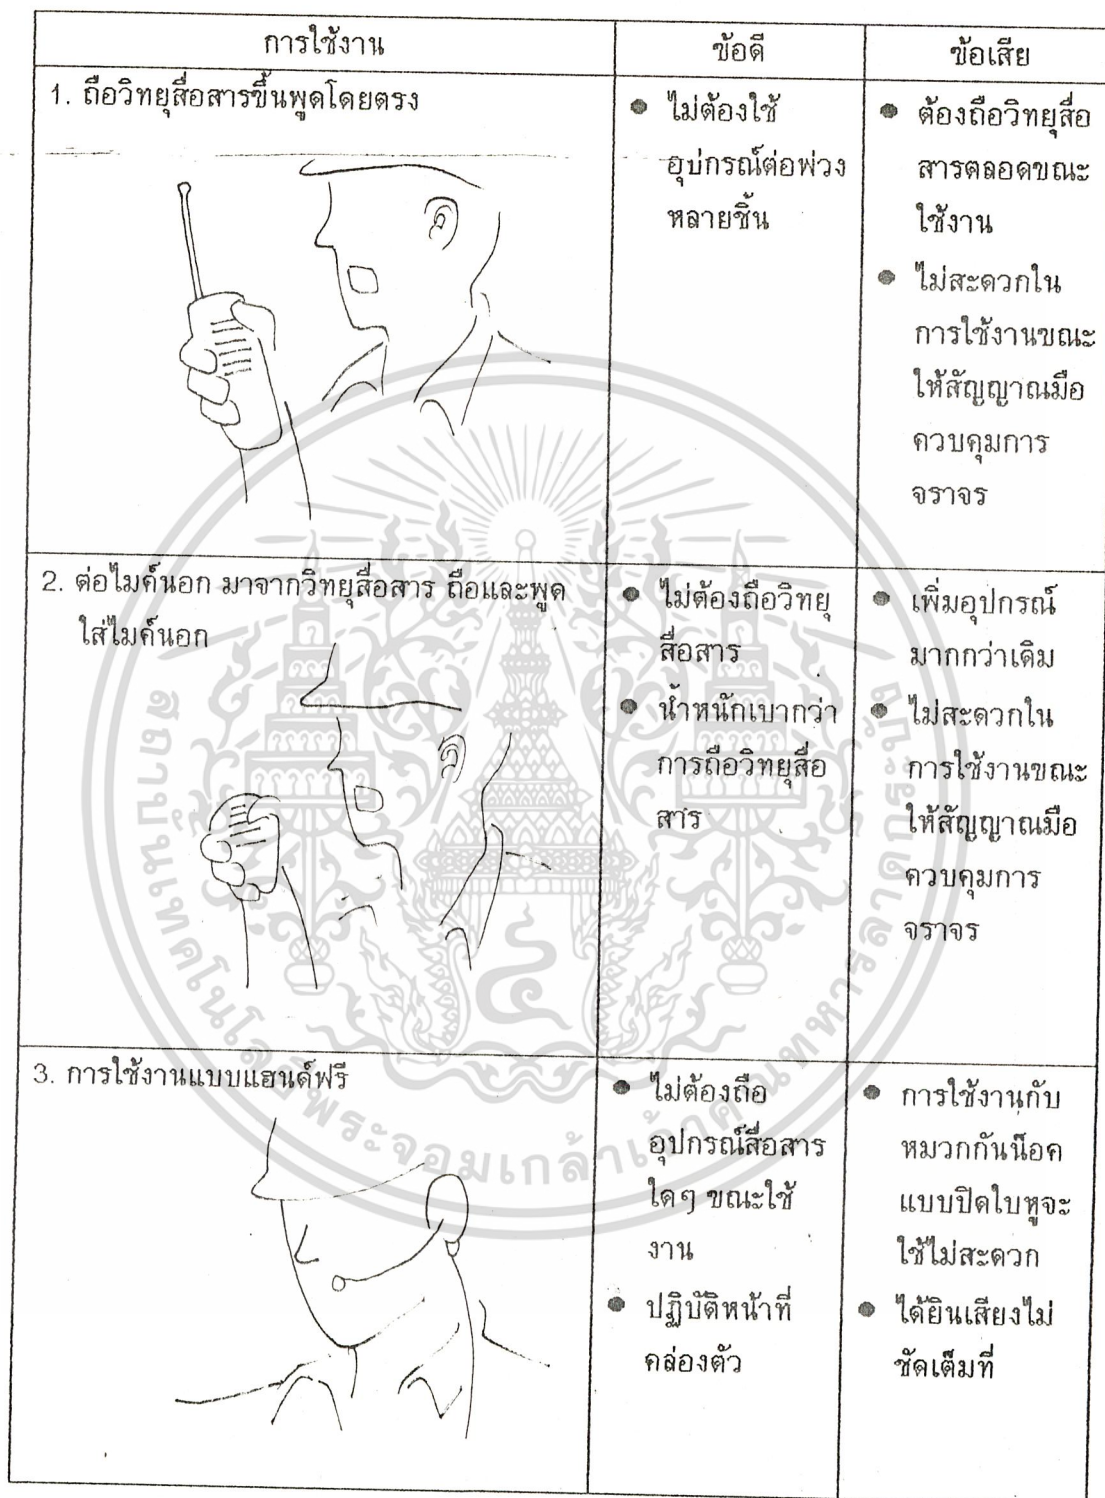 การใช้งาน ข้อดี ข้อเสีย
1. ถือวิทยุสื่อสารขึ้นพูดโดยตรง
● ไม่ต้องใช้
อุปกรณ์ต่อพ่วง
หลายชิ้น
● ต้องถือวิทยุสื่อ
สารตลอดขณะ
ใช้งาน
● ไม่สะดวกใน
การใช้งานขณะ
ให้สัญญาณมือ
ควบคุมการ
จราจร
2. ต่อไมค์นอก มาจากวิทยุสื่อสาร ถือและพูด
ใส่ไมค์นอก
● ไม่ต้องถือวิทยุ
สื่อสาร
● น้ำหนักเบากว่า
การถือวิทยุสื่อ
สาร
● เพิ่มอุปกรณ์
มากกว่าเดิม
● ไม่สะดวกใน
การใช้งานขณะ
ให้สัญญาณมือ
ควบคุมการ
จราจร
3. การใช้งานแบบแฮนด์ฟรี
● ไม่ต้องถือ
อุปกรณ์สื่อสาร
ใดๆ ขณะใช้
งาน
● ปฏิบัติหน้าที่
คล่องตัว
● การใช้งานกับ
หมวกกันน็อค
แบบปิดใบหูจะ
ใช้ไม่สะดวก
● ได้ยินเสียงไม่
ชัดเต็มที่
สถาบันเทคโนโลยีพระจอมเกล้าเจ้าคุณทหารลาดกระบัง